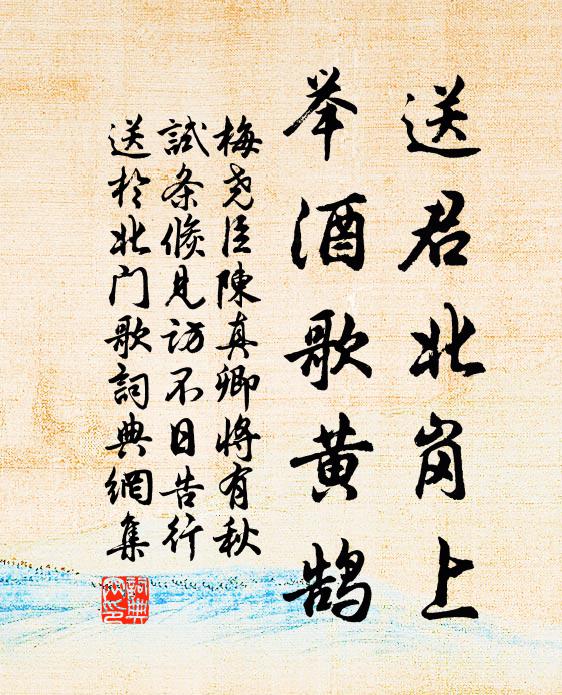 送君北岗上
举酒歌黄鹄
梅尧臣陳真卿將有秋
試条倏見访不日告行
送於北门歌詞典網集